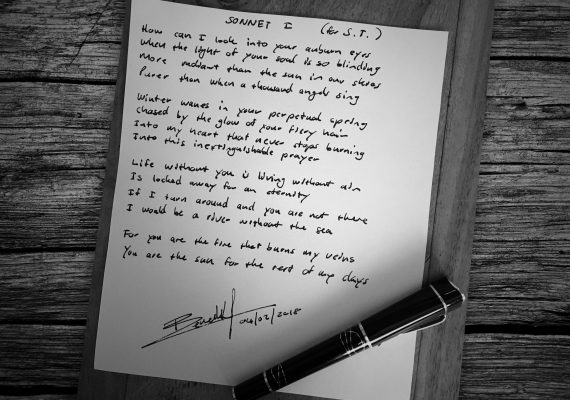 SONNET I (for S.T.)
How can I look into your auburn eyes
when the light of your soul is so blinding
more radiant than the sun in our skies
Purer than when a thousand angels sing
Winter wanes in your perpetual spring
chased by the glow of your fiery hair
Into my heart that never stops burning
Into this inextinguishable prayer
Life without you is living without aim
Is locked away for an eternity
If I turn around and you are not there
I would be a river without the sea
For you are the fire that burns my veins
You are the sun for the rest of my days
04/02/2018